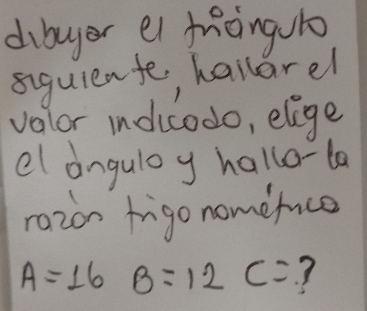 dibujar el triángulo
siguiente, hallar el
valor indicado, elige
el ángulo y halla la
razón trigonométrica
A = 16 B = 12 C = ?